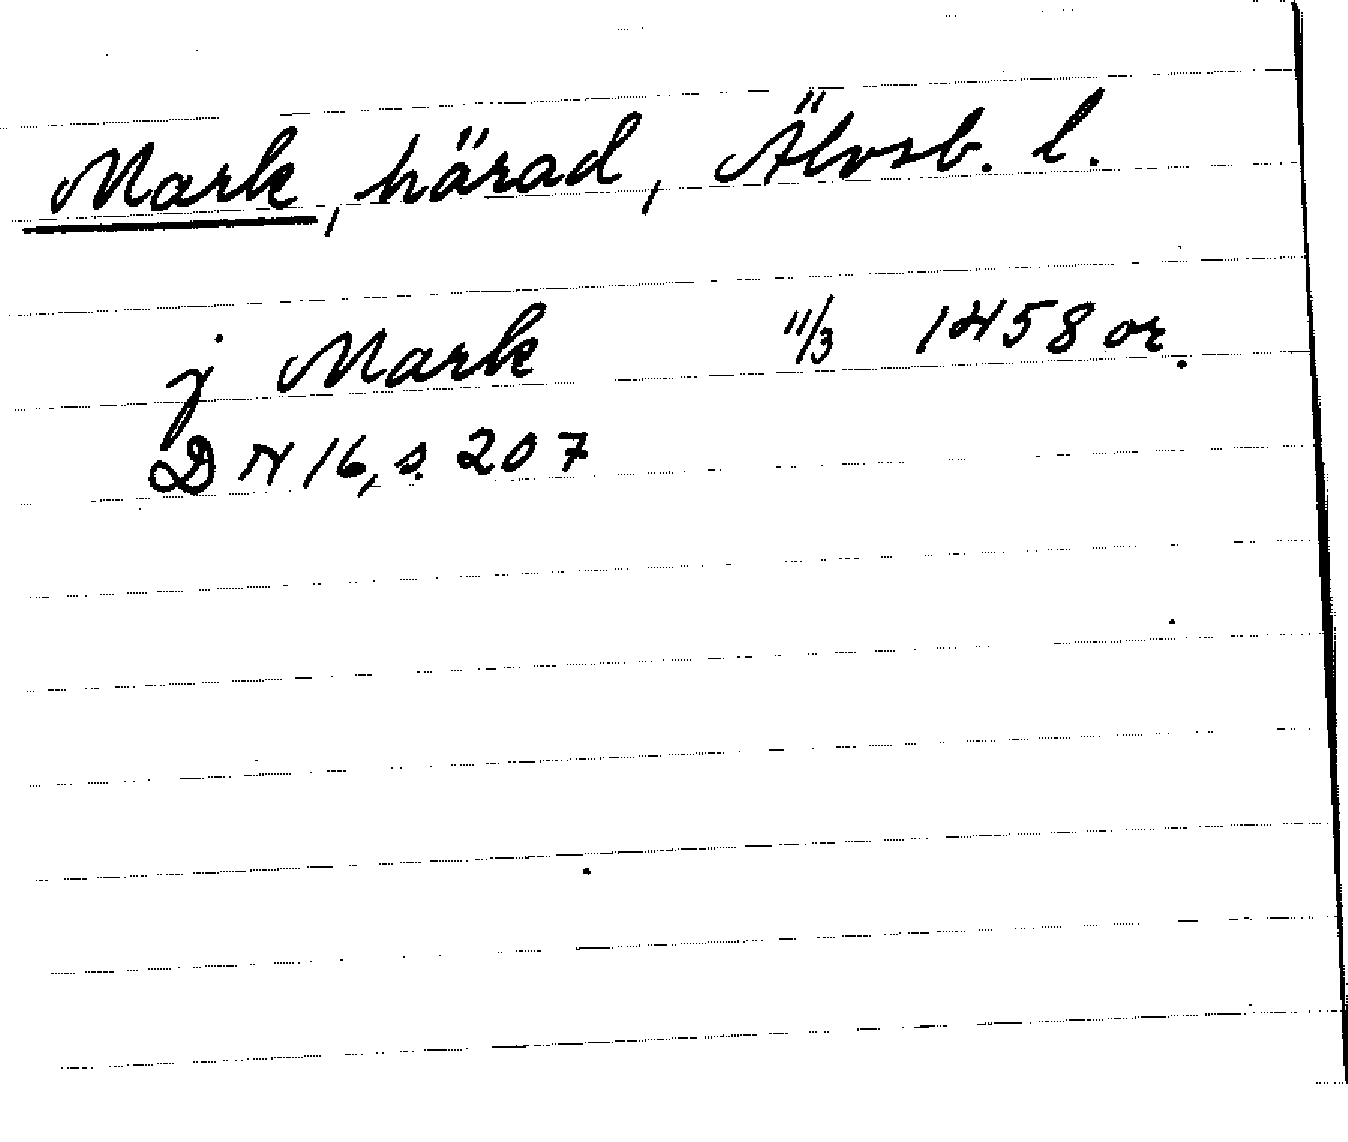 Mark, härad, Älvsb. l.
j Mark 11/3 1458 or.
DN 16, s. 207